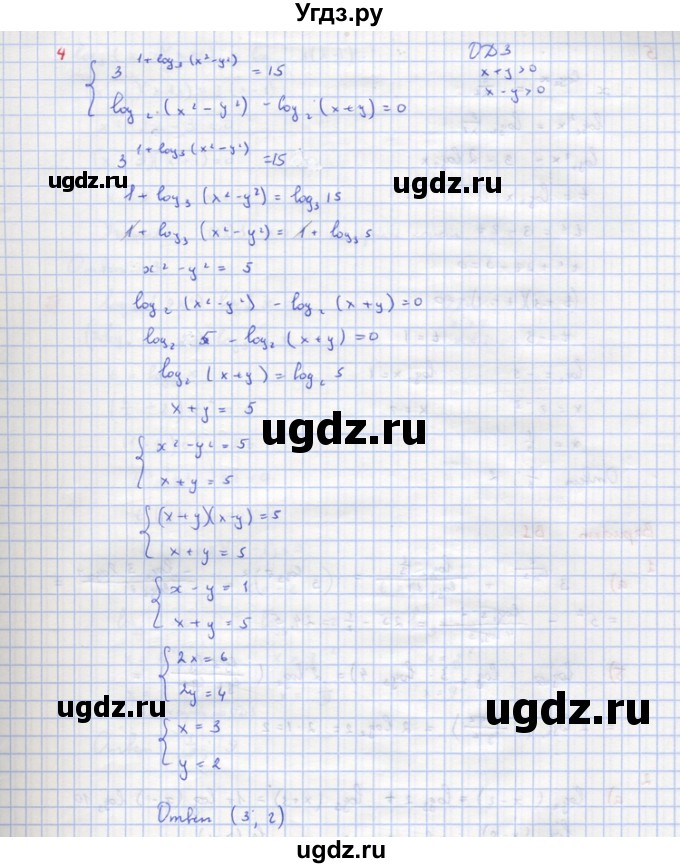 Угдз.ру
4
{ 3^(1+log₃(x²-y²)) = 15
log₂(x²-y²) - log₂(x+y)=0
ОДЗ
x+y>0
x-y>0
3^(1+log₃(x²-y²)) =15
ugdz.ru ugdz.ru
1+log₃(x²-y²)=log₃15
1+log₃(x²-y²)= 1+log₃5
x²-y²= 5
log₂(x²-y²) - log₂(x+y)=0
log₂ 5 - log₂(x+y)=0
log₂(x+y)=log₂5
x+y= 5
ugdz.ru
{ x²-y²=5
x+y=5
{ (x+y)(x-y)=5
x+y=5
{ x-y=1
x+y=5
{ 2x=6
2y=4
ugdz.ru ugdz.ru
{ x=3
y=2
Ответ (3; 2)
ugdz.ru